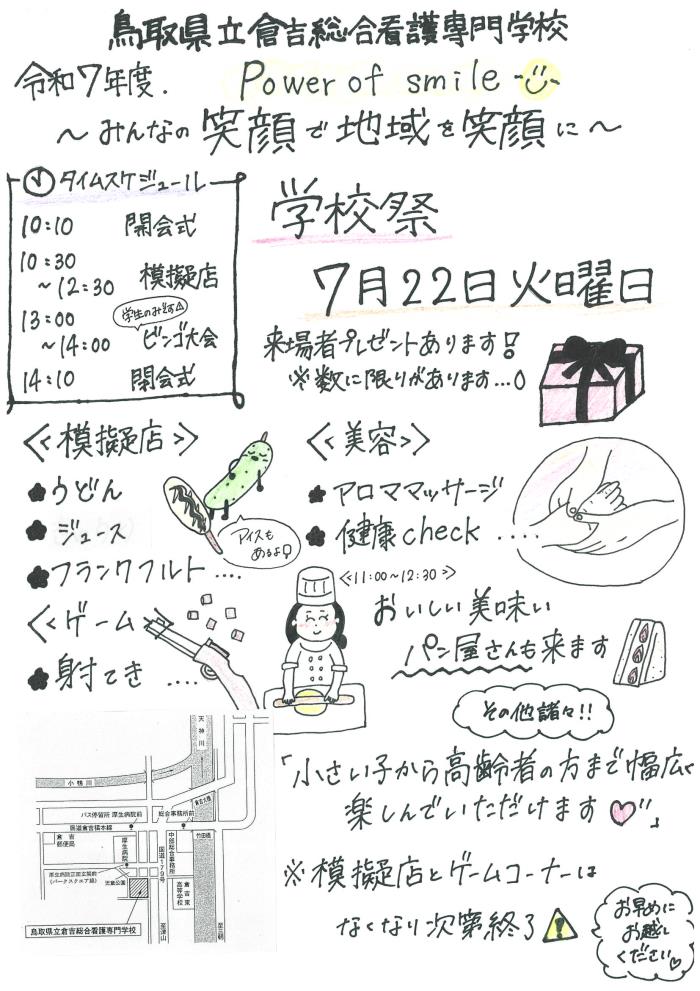 鳥取県立倉吉総合看護専門学校
令和7年度. Power of smile
～みんなの笑顔で地域を笑顔に～
タイムスケジュール
10:10 開会式
10:30
～12:30 模擬店
学生のみです△
13:00
～14:00 ビンゴ大会
14:10 閉会式
学校祭
7月22日火曜日
来場者プレゼントあります!
※数に限りがあります…
≪模擬店≫
うどん
ジュース
フランクフルト....
アイスも
あるよ!
≪ゲーム≫
射てき ....
≪美容≫
アロママッサージ
健康check ....
≪11:00～12:30≫
おいしい美味い
パン屋さんも来ます
その他諸々!!
「小さい子から高齢者の方まで幅広く
楽しんでいただけます♡"」
※模擬店とゲームコーナーは
なくなり次第終了
お早めに
お越し
ください♡
天神川
小鴨川
バス停留所 厚生病院前
総合事務所前
県道倉吉橋本線
竹田橋
倉吉郵便局
厚生病院
国道179号
中部総合事務所
倉吉東高等学校
厚生病院正面玄関前
(パークスクエア線)
児童公園
鳥取県立倉吉総合看護専門学校
至津山
至三朝